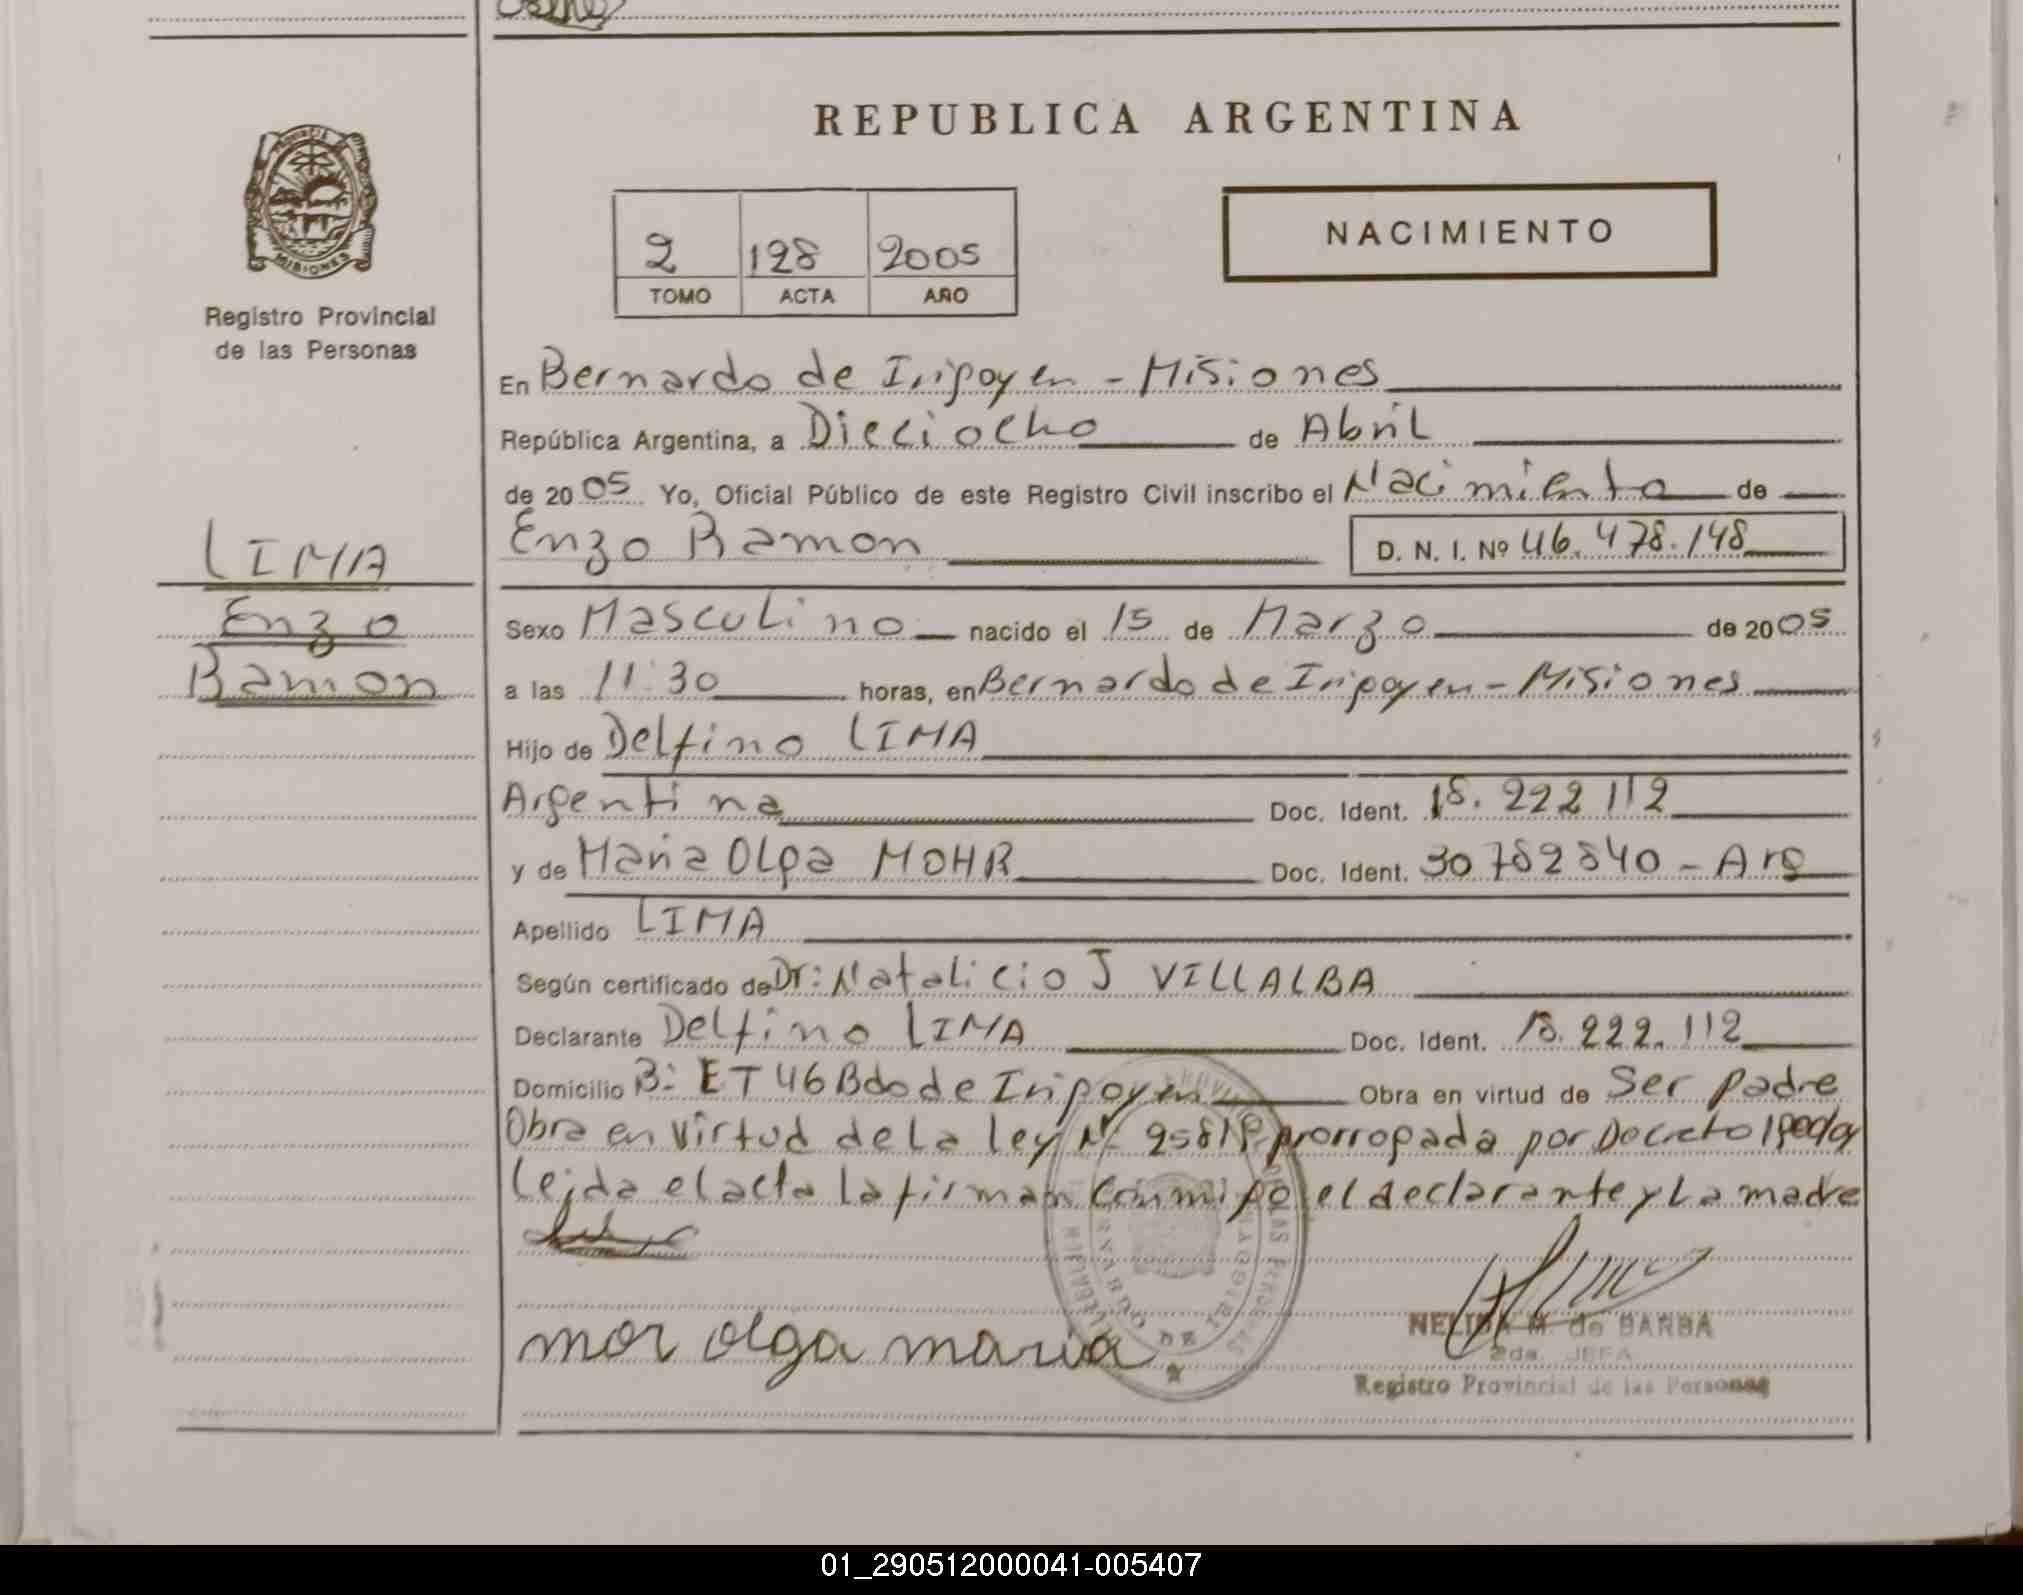 REPUBLICA ARGENTINA
PROVINCIA
MISIONES
Registro Provincial
de las Personas
2 128 2005
TOMO ACTA AÑO
NACIMIENTO
LIMA
Enzo
Ramon
En Bernardo de Irigoyen - Misiones
República Argentina, a Dieciocho de Abril
de 2005 Yo, Oficial Público de este Registro Civil inscribo el Nacimiento de
Enzo Ramon D. N. I. Nº 46.478.148
Sexo Masculino nacido el 15 de Marzo de 2005
a las 11:30 horas, en Bernardo de Irigoyen - Misiones
Hijo de Delfino LIMA
Argentina Doc. Ident. 18.222 112
y de Maria Olga MOHR Doc. Ident. 30782840 - Arg
Apellido LIMA
Según certificado de Dr: Natalicio J VILLALBA
Declarante Delfino LIMA Doc. Ident. 18.222.112
Domicilio B: ET 46 Bdo de Irigoyen Obra en virtud de Ser padre
Obra en virtud de La Ley Nº prorrogada por Decreto
Leida el acta la firman Conmigo el declarante y La madre
mor olga maria
NELIDA M. de BARBA
2da. JEFA
Registro Provincial de las Personas
01_290512000041-005407